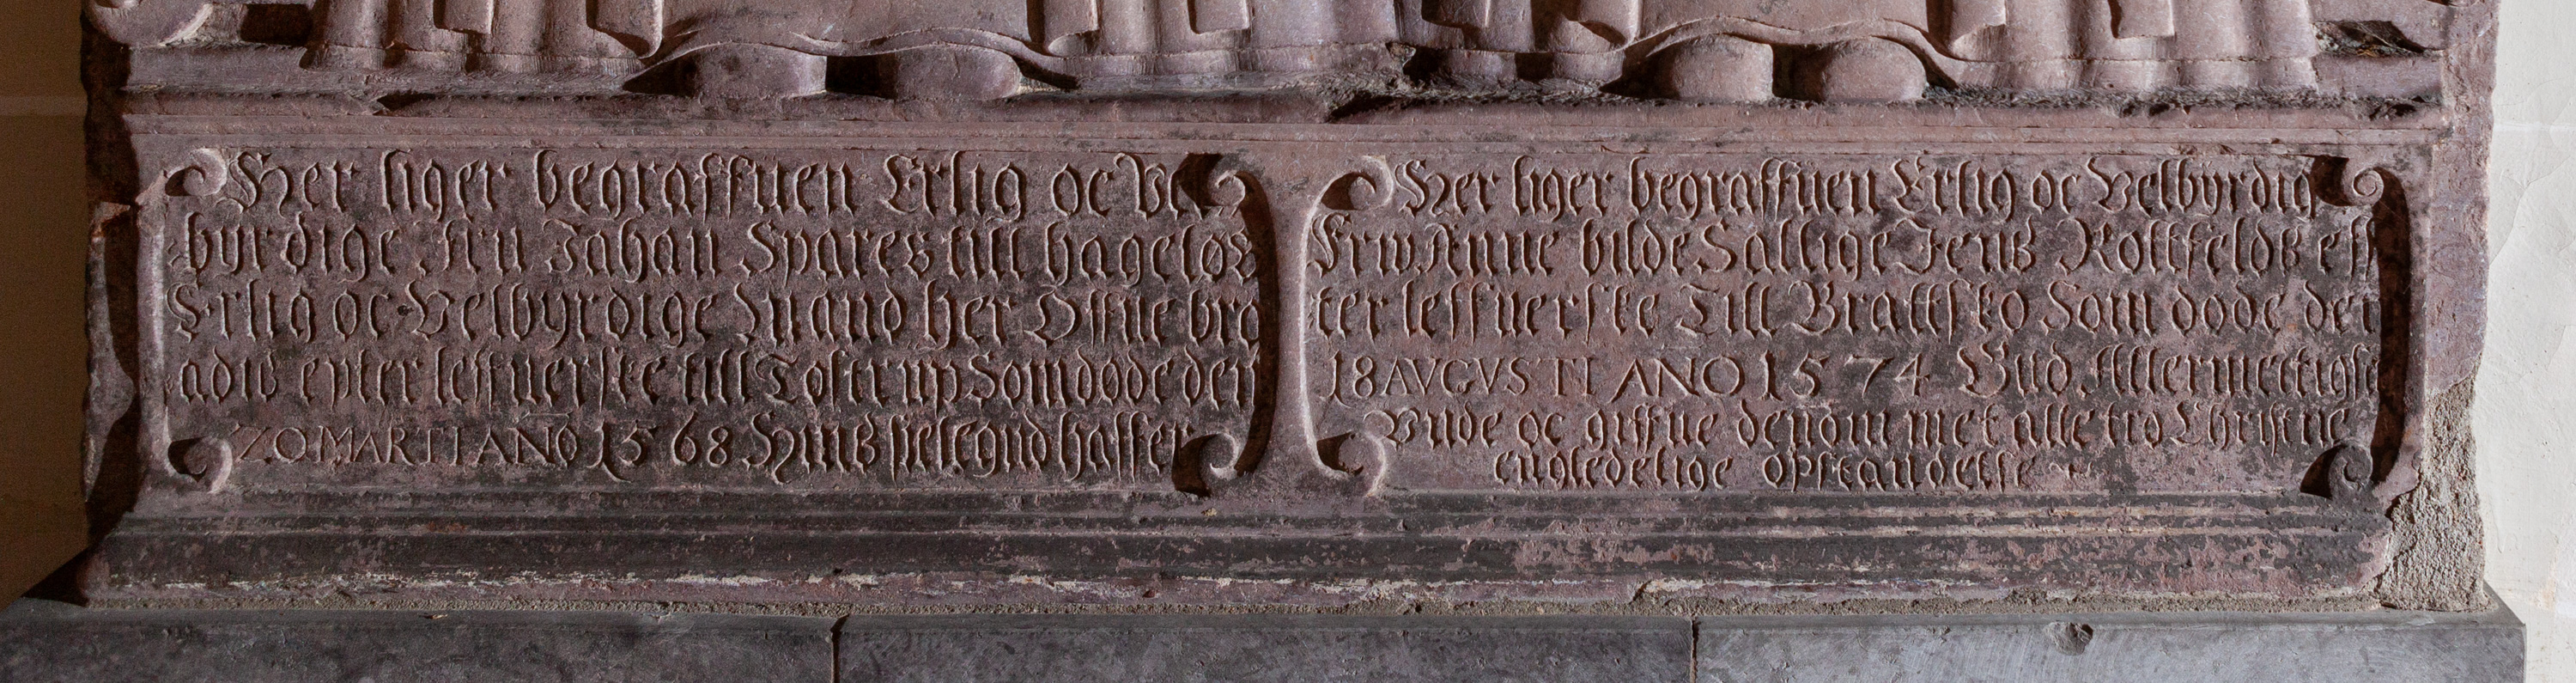 Her liger begraffuen Erlig oc Vel
byrdige Fru Jahan Spares till hageløß
Erlig oc Velbyrdige Mand Her Offue bra
adis epter leffuerske till Tostrup Som døde den
20 MARTI ANO 1568 Huis siele gud haffer
Her liger begraffuen Erlig oc Velbyrdig
Frw Anne bilde Sallige Jens Rottfelds eff
ter leffuerske Till Brattsko Som dode den
18 AVGVSTI ANO 1574 Vnd Allermectigste
Vnde oc giffue denom met alle tro Christne
en gledelige opstandelse